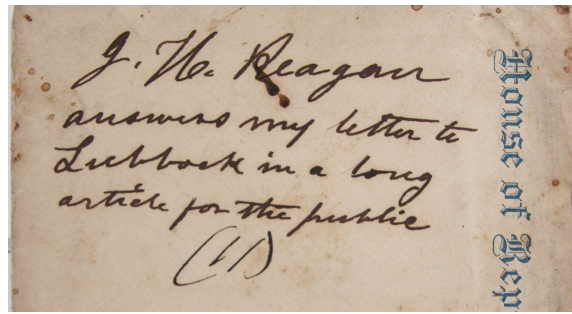 J. H. Reagan
answers my letter to
Lubbock in a long
article for the public
(11)
House of Rep